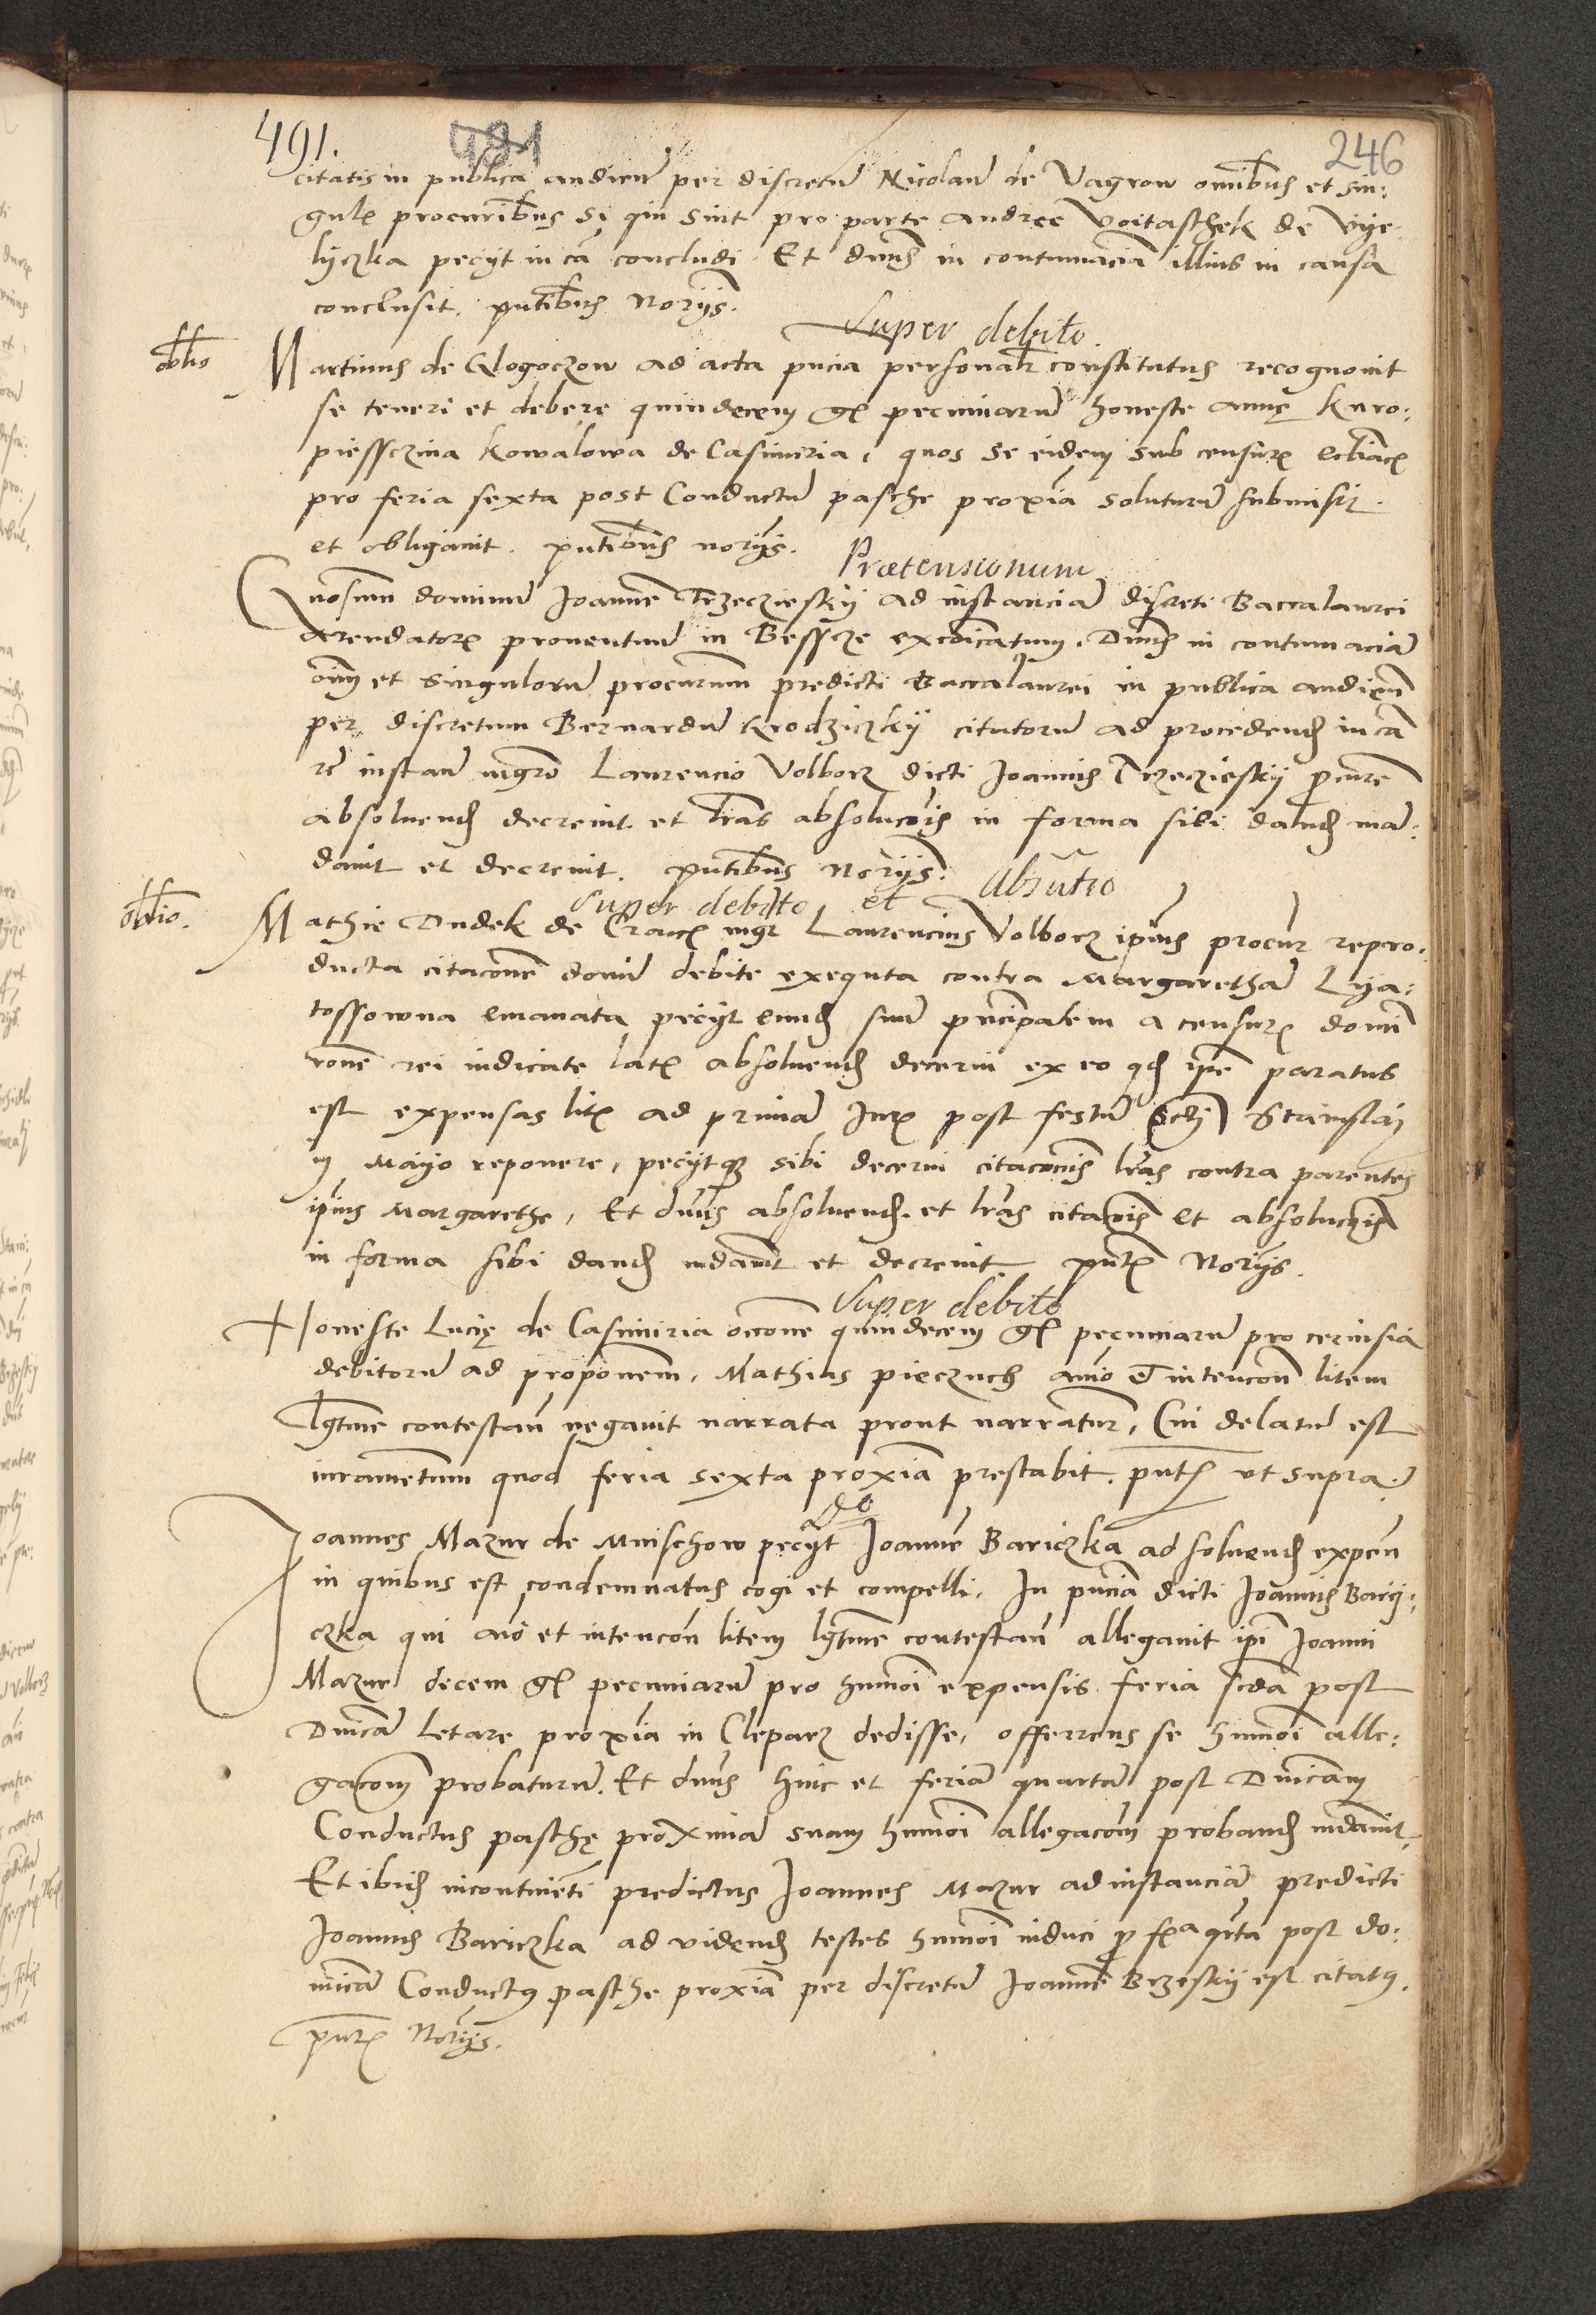 491.
491
246
citatis in publica audien̄ per discretū Nicolaū de Vagrow om̄ibus et sin:
gulis procurībus si qui sint pro parte Andree Voitaschek de Vye
lyczka pecijt in cā concludi. Et dn̄us in contumaciā illius in causa
conclusit. pn̄tibus Norijs.
Super debito.
obl̄io
Martinus de Glogoczow ad acta pn̄cia personalr̄ constitutus recognovit
se teneri et debere quindecem gl pecuniarū honeste Annę Kuro:
piessczina Kowalowa de Casimiria, quos se eidem sub censuris ecl̄iacis
pro feria sexta post Conductū pasche proxīa soluturū submisit
et obligavit. pn̄tibus norijs.
Prætensionum
Gn̄osum dominū Joannē Trzeczieskij ad instanciā discreti Baccalaurei
Arendatoris proventuū in Besscze exco̅icatum. Dn̄us in contumaciā
oīm et singulorū procur̄um predicti Baccalaurei in publica audien̄
per discretum Bernardū Krodziczkij citatorū ad procedend̄ in cā
et instan̄ mgr̄o Laurencio Volborz dicti Joannis Trzeczieskij p̱cur̄e
absolvend̄ decrevit. et l̄ras absoluc̄oīs in forma sibi dand̄ man̄:
davit et decrevit. pn̄tibus Norijs.
Super debito et Absūtio
obl̄io.
Mathie Dudek de Cracis mgr̄ Laurencius Volborz ip̄ius procur̄ repro:
ducta citac̄one domī debite exequta contra Margarethā Lya:
tossowna emanata pecijt eund̄ suū pn̄cipalem a censuris domī
rōne rei iudicate latis absolvend̄ decerni ex eo qd̄ ip̄e paratus
est expensas litis ad primā Juris post festū Scti Stanislai
in Mayo reponere, pecijtqȝ sibi decerni citac̄onis l̄ras contra parentes
ip̄ius Margarethe, Et dn̄us absolvend̄. et l̄ras citac̄ois et absoluc̄ois
in forma sibi dand̄ mdavit et decrevit. pn̄tis Norijs.
Super debito
Honeste Lucię de Casimiria ōccone quindecem gl pecuniarū pro cervisia
debitorū ad proponem̄, Mathias pieczuch anīo et intenc̄oni litem
l̄gtme contestan̄ negavit narrata prout narrantur, Cui delatū est
iuramentum quod feria sexta proxīa prestabit. pn̄tis ut supra.
Do
Joannes Mazur de Mnischow pecijt Joannē Bariczka ad solvend̄ expen̄
in quibus est condemnatus cogi et compelli. In pn̄cia dicti Joannis Barij:
czka qui aīo et intenc̄on litem l̄gtme contestan̄ allegavit ip̄i Joanni
Mazur decem gl pecuniarū pro hm̄oī expensis feria sc̄da post
Dn̄icā Letare proxīa in Cleparz dedisse, offerrens se hm̄oī alle:
gac̄onm probaturū. Et dn̄us huic et feriā quartā post Dn̄icam
Conductus paschę proximā suam hm̄oī allegac̄om proband̄ mdavit.
Et ibid̄ incontinēti predictus Joannes Mazur ad instanciā predicti
Joannis Bariczka ad videnđ testes hm̄oī induci p̱ fa qrta post do:
mīcā Conductus pasche proxīa per discretū Joannē Brzeskij est citatus.
pn̄tis Norijs.